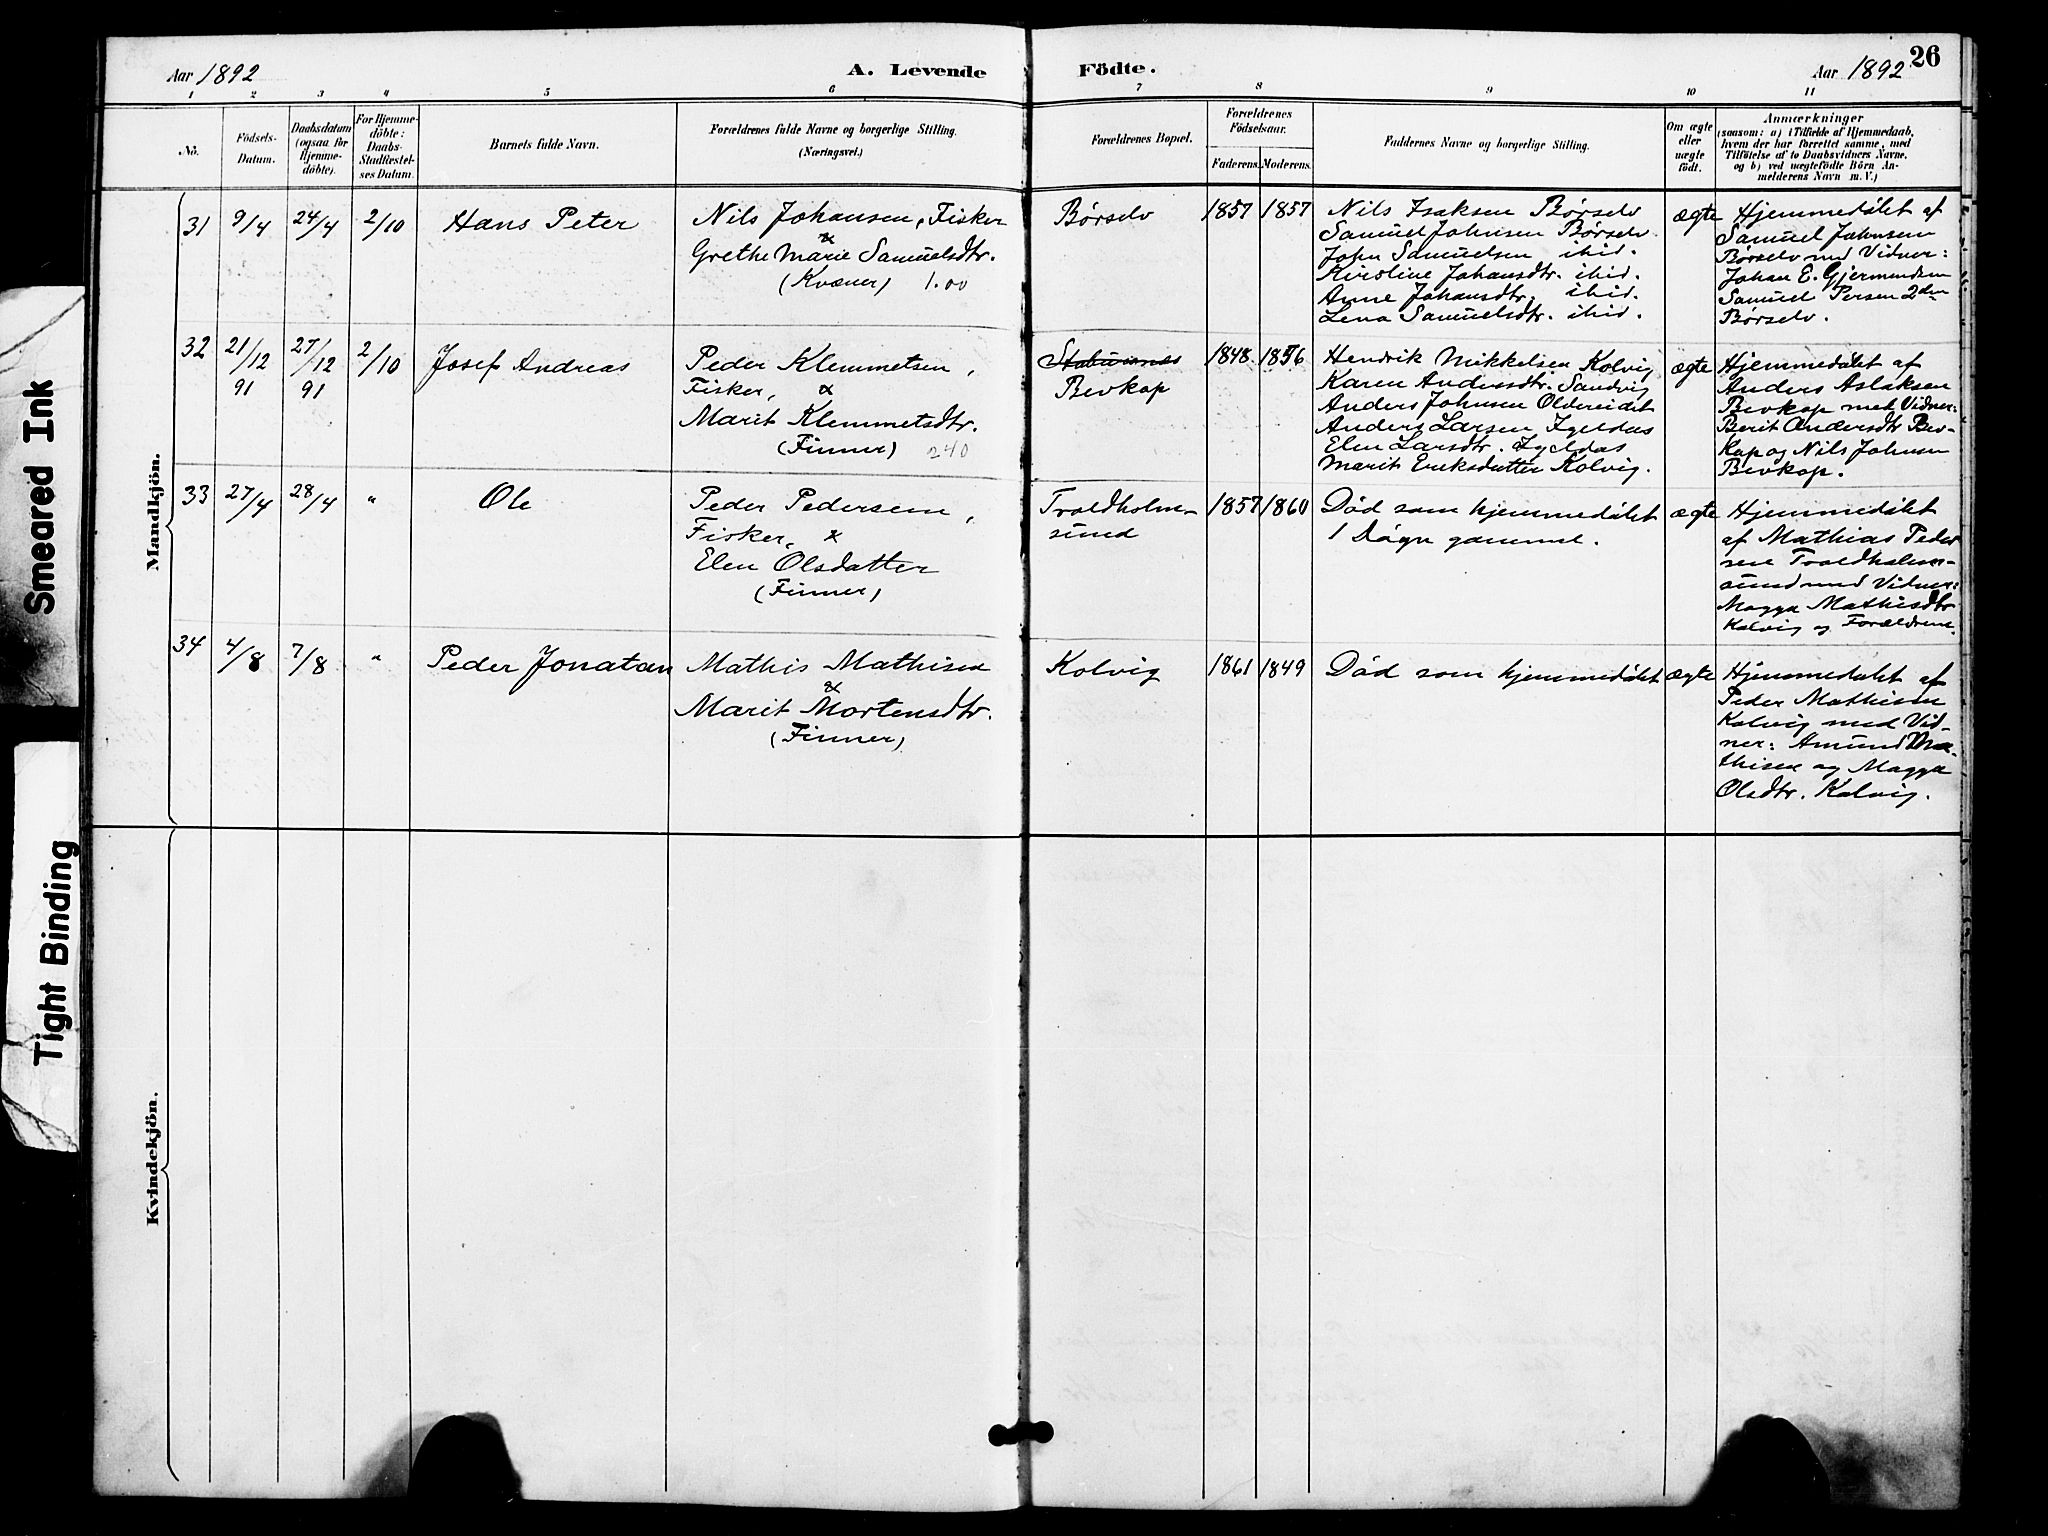 Smeared Ink
Tight Binding
Aar 1892
A. Levende Födte.
Aar 1892
26
1 2 3 4 5 6 7 8 9 10 11
No.
Födsels-Datum.
Daabsdatum (ogsaa for Hjemme-döbte).
For Hjemme-döbte: Daabs-Stadfæstel-ses Datum.
Barnets fulde Navn.
Forældrenes fulde Navne og borgerlige Stilling.
(Næringsvei.)
Forældrenes Bopæl.
Forældrenes Födselsaar.
Faderens. Moderens.
Faddernes Navne og borgerlige Stilling.
Om ægte eller uægte födt.
Anmærkninger
(saasom: a) i Tilfælde af Hjemmedaab,
hvem der har forrettet samme, med
Tilföielse af to Daabsvidners Navne,
og b) ved uægtefödte Börn An-
melderens Navn m. V.)
Mandkjön.
31 9/4 24/4 2/10 Hans Peter
Nils Johansen, Fisker
&
Grethe Marie Samuelsdtr.
(Kvæner) 1.00
Børselv
1857 1857
Nils Isaksen Børselv
Samuel Johnsen Børselv
John Samuelsen ibid.
Kiroline Johansdtr. ibid.
Anne Johansdtr. ibid.
Lena Samuelsdtr. ibid.
ægte
Hjemmedøbt af
Samuel Johnsen
Børselv med Vidner:
Johan E. Gjermundsen
Samuel Persen 2den
Børselv.
32 21/12 91 27/12 91 2/10 Josef Andreas
Peder Klemmetsen,
Fisker, &
Marit Klemmetsdtr.
(Finner) 240
Stabursnes
Bevkop
1848 1856
Hendrik Mikkelsen Kolvig
Karen Andersdtr. Sandvig
Anders Johnsen Oldereidet
Anders Larsen Igeldas
Elen Larsdtr. Igeldas
Marit Eriksdatter Kolvig.
ægte
Hjemmedøbt af
Anders Aslaksen
Bevkop med Vidner:
Berit Andersdtr Bev-
kop og Nils Johnsen
Bevkop.
33 27/4 28/4 " Ole
Peder Pedersen,
Fisker, &
Elen Olsdatter
(Finner)
Troldholm-
sund
1857 1860
Død som hjemmedøbt
1 Døgn gammel.
ægte
Hjemmedøbt
af Mathias Peder
sen Troldholm-
sund med Vidner:
Magga Mathisdtr
Kolvig og Forældrene.
34 4/8 7/8 " Peder Jonatan
Mathis Mathisen
&
Marit Mortensdtr.
(Finner)
Kolvig
1861 1849
Død som hjemmedøbt
ægte
Hjemmedøbt af
Peder Mathisen
Kolvig med Vid-
ner: Amund Ma-
thisen og Magga
Olsdtr. Kolvig.
Kvindekjön.